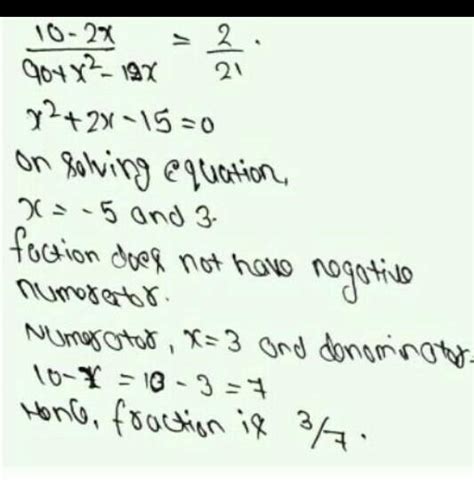 10-2x / 90+x²-19x = 2/21 .
x²+2x-15=0
on solving equation,
x = -5 and 3.
faction does not have negative
numerator.
Numerator, x=3 and denominator.
10-x = 10-3 = 7
Hence, fraction is 3/7.